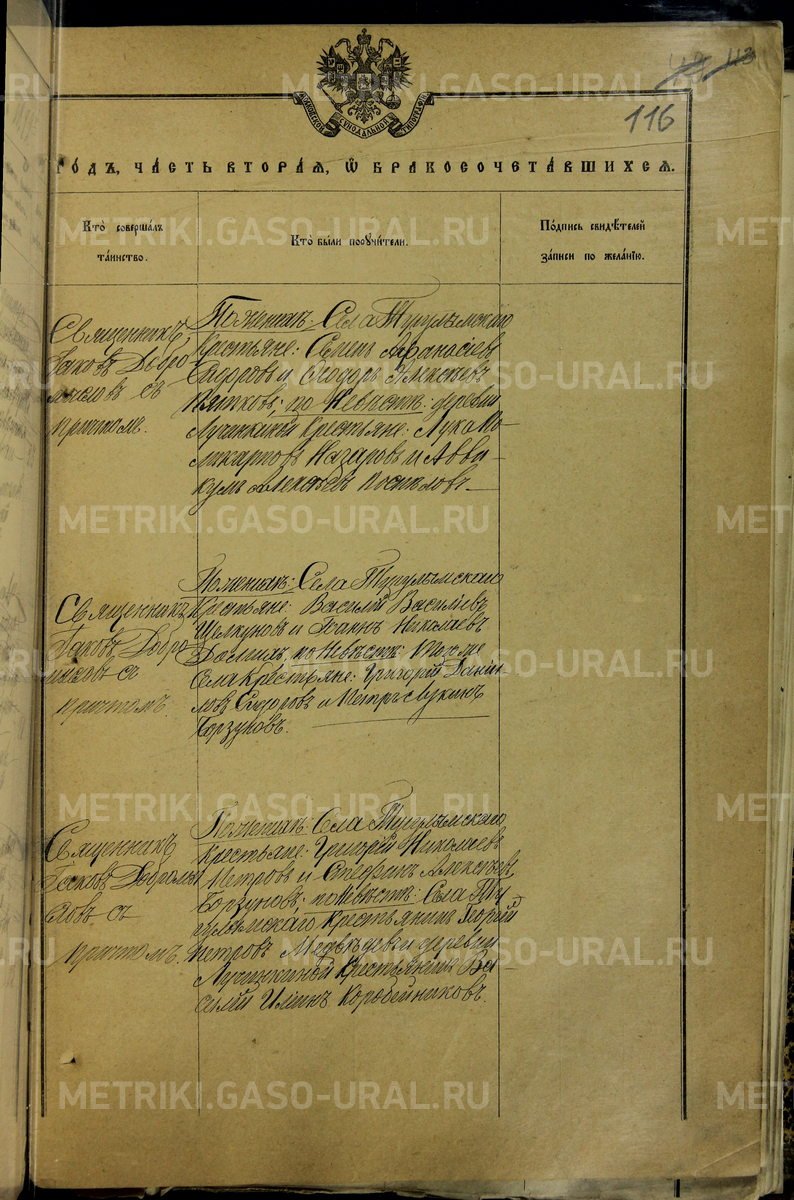 116
МОСКОВСКОЙ СѴНОДАЛЬНОЙ ТИПОГРАФІИ
ГО́ДЪ, ЧА́СТЬ ВТОРА́Я, Ѡ҆ БРАКОСОЧЕТА́ВШИХСЯ.
Кто̀ соверша́лъ
та́инство.
Кто̀ бы́ли порꙋчи́тели.
По́дпись свидѣ́телей
за́писи по жела́нїю.
Священникъ
Іаковъ Добро
мысловъ съ
причтомъ.
По женихѣ: Села Тугулымскаго
крестьяне: Семенъ Афанасіевъ
Сидоровъ и Ѳеодоръ Алексѣевъ
Пятковъ; по невѣстѣ: деревни
Лучинкиной крестьяне: Лука По-
ликарповъ Назаровъ и Авва-
кумъ Алексѣевъ Поспѣловъ.
Священникъ
Іаковъ Добро
мысловъ съ
причтомъ.
По женихѣ: Села Тугулымскаго
крестьяне: Василій Васильевъ
Шелкуновъ и Іоаннъ Николаевъ
по невѣстѣ: того же
села крестьяне: Григорій Дании-
ловъ Сидоровъ и Петръ Лукинъ
Борзуновъ.
Священникъ
Іаковъ Добромы
словъ съ
причтомъ.
По женихѣ: Села Тугулымскаго
крестьяне: Григорій Николаевъ
Петровъ и Стефанъ Алексѣевъ
Борзуновъ; по невѣстѣ: Села Ту-
гулымскаго крестьянинъ Георгій
Петровъ Медвѣдевъ и деревни
Лучинкиной крестьянинъ Ва-
силій Ильинъ Коробейниковъ.
METRIKI.GASO-URAL.RU